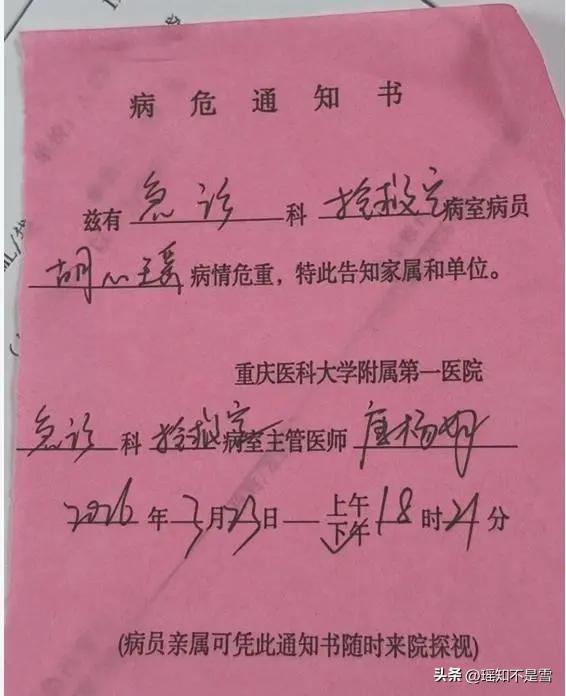 病危通知书
兹有 急诊 科 抢救室 病室病员
胡心瑶 病情危重，特此告知家属和单位。
重庆医科大学附属第一医院
急诊 科 抢救室 病室主管医师
2026 年 3 月 23 日 上午
下午 18 时 21 分
(病员亲属可凭此通知书随时来院探视)
头条 @瑶知不是雪